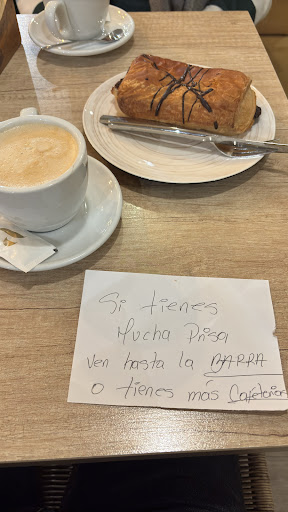 Si tienes
Mucha Prisa
ven hasta la BARRA
o tienes más Cafeterías